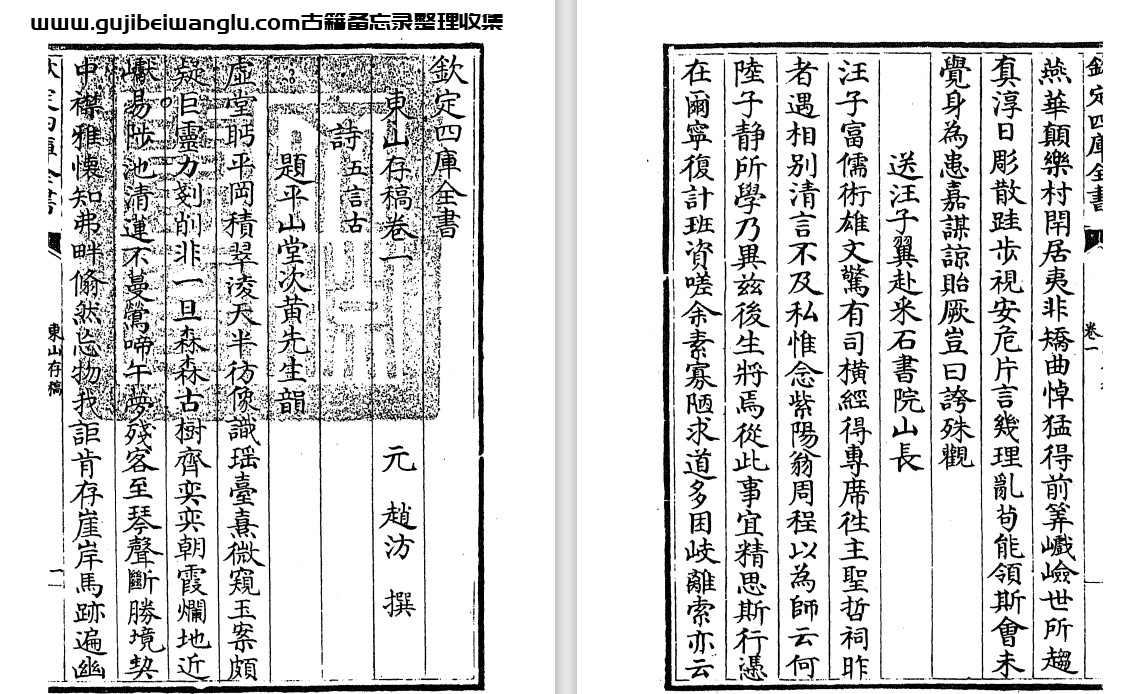 www.gujibeiwanglu.com古籍备忘录整理收集
欽定四庫全書
東山存稿卷一
元 趙汸 撰
詩 五言古
題平山堂次黃先生韻
虛堂眄平岡積翠淩天半彷像識瑶臺熹微窺玉案頗
疑巨靈力剗削非一旦森森古樹齊奕奕朝霞爛地近
巘易陟池清蓮不蔓鶯啼午夢殘客至琴聲斷勝境契
中襟雅懷知弗畔翛然忘物我詎肯存崖岸馬跡遍幽
東山存稿
一
欽定四庫全書
卷一
燕華顛樂村閈居夷非矯曲悼猛得前筭巇嶮世所趨
真淳日彫散跬步視安危片言幾理亂茍能領斯會未
覺身為患嘉謀諒貽厥豈曰誇殊觀
送汪子翼赴采石書院山長
汪子富儒術雄文驚有司橫經得專席徃主聖哲祠昨
者遇相別清言不及私惟念紫陽翁周程以為師云何
陸子静所學乃異兹後生將焉從此事宜精思斯行憑
在爾寧復計班資嗟余素寡陋求道多困岐離索亦云